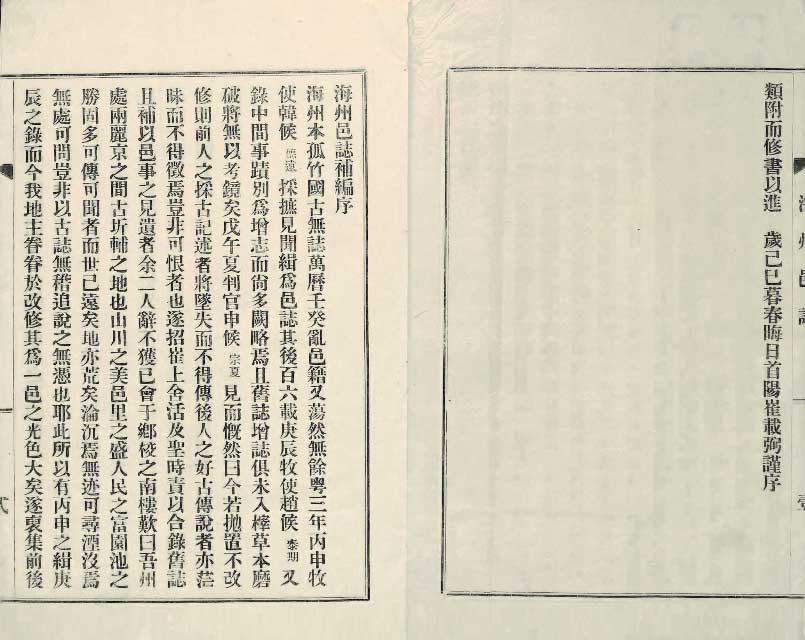 類附而修書以進　歲己巳暮春晦日首陽崔載弼謹序
海州邑誌補編序
海州本孤竹國古無誌萬曆壬癸亂邑籍又蕩然無餘粤三年丙申牧
使韓候德遠採摭見聞緝爲邑誌其後百六載庚辰牧使趙候泰期又
錄中間事蹟別爲增志而尙多闕略焉且舊誌增誌俱未入榟草本磨
破將無以考鏡矣戊午夏判官申候宗夏見而慨然曰今若抛置不改
修則前人之採古記述者將墜失而不得傳後人之好古傳說者亦茫
昧而不得徵焉豈非可恨者也遂招崔上舍活及聖時責以合錄舊誌
且補以邑事之見遺者余二人辭不獲已會于鄕校之南樓歎曰吾州
處兩麗京之間古圻輔之地也山川之美邑里之盛人民之富園池之
勝固多可傳可聞者而世已遠矣地亦荒矣淪沉焉無迹可尋湮沒焉
無處可問豈非以古誌無稽追說之無憑也耶此所以有丙申之緝庚
辰之錄而今我地主眷眷於改修其爲一邑之光色大矣遂裒集前後